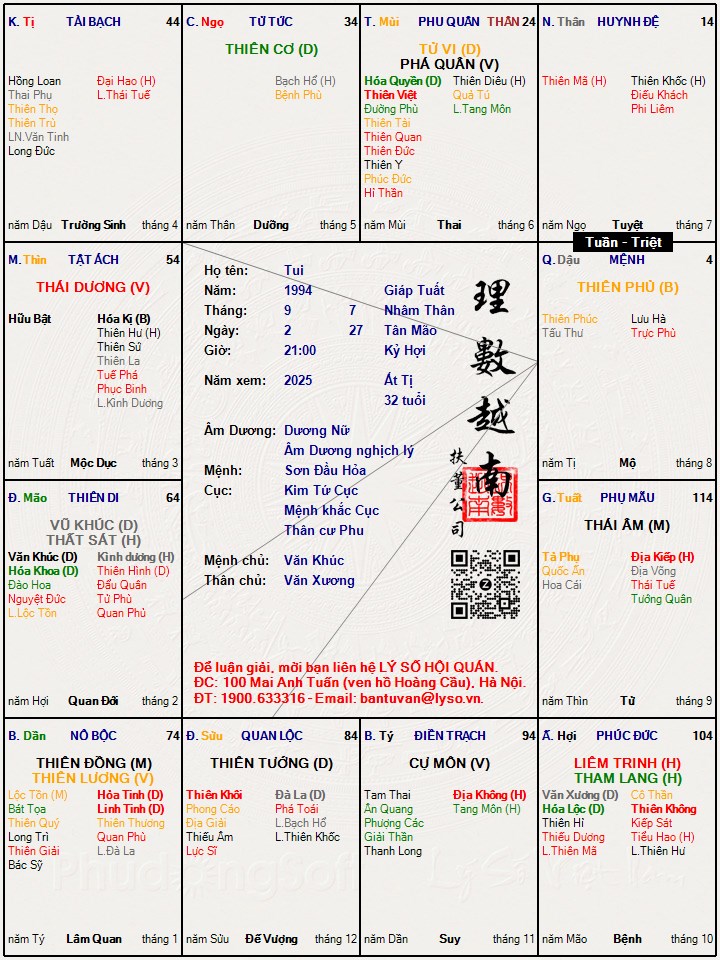 K. Tị TÀI BẠCH 44
Hồng Loan Đại Hao (H)
Thai Phụ L.Thái Tuế
Thiên Thọ
Thiên Trù
LN.Văn Tinh
Long Đức
năm Dậu Trường Sinh tháng 4
C. Ngọ TỬ TỨC 34
THIÊN CƠ (D)
Bạch Hổ (H)
Bệnh Phù
năm Thân Dưỡng tháng 5
T. Mùi PHU QUÂN THÂN 24
TỬ VI (D)
PHÁ QUÂN (V)
Hóa Quyền (D) Thiên Diêu (H)
Thiên Việt Quả Tú
Đường Phù L.Tang Môn
Thiên Tài
Thiên Quan
Thiên Đức
Thiên Y
Phúc Đức
Hỉ Thần
năm Mùi Thai tháng 6
N. Thân HUYNH ĐỆ 14
Thiên Mã (H) Thiên Khốc (H)
Điếu Khách
Phi Liêm
năm Ngọ Tuyệt tháng 7
Tuần - Triệt
M. Thìn TẬT ÁCH 54
THÁI DƯƠNG (V)
Hữu Bật Hóa Kị (B)
Thiên Hư (H)
Thiên Sứ
Thiên La
Tuế Phá
Phục Binh
L.Kình Dương
năm Tuất Mộc Dục tháng 3
Họ tên: Tui
Năm: 1994 Giáp Tuất
Tháng: 9 7 Nhâm Thân
Ngày: 2 27 Tân Mão
Giờ: 21:00 Kỷ Hợi
Năm xem: 2025 Ất Tị
32 tuổi
Âm Dương: Dương Nữ
Âm Dương nghịch lý
Mệnh: Sơn Đầu Hỏa
Cục: Kim Tứ Cục
Mệnh khắc Cục
Thân cư Phu
Mệnh chủ: Văn Khúc
Thân chủ: Văn Xương
理數越南
扶董公司
Để luận giải, mời bạn liên hệ LÝ SỐ HỘI QUÁN.
ĐC: 100 Mai Anh Tuấn (ven hồ Hoàng Cầu), Hà Nội.
ĐT: 1900.633316 - Email: bantuvan@lyso.vn.
Q. Dậu MỆNH 4
THIÊN PHỦ (B)
Thiên Phúc Lưu Hà
Tấu Thư Trực Phù
năm Tị Mộ tháng 8
Đ. Mão THIÊN DI 64
VŨ KHÚC (D)
THẤT SÁT (H)
Văn Khúc (D) Kình dương (H)
Hóa Khoa (D) Thiên Hình (D)
Đào Hoa Đẩu Quân
Nguyệt Đức Tử Phù
L.Lộc Tồn Quan Phủ
năm Hợi Quan Đới tháng 2
G. Tuất PHỤ MẪU 114
THÁI ÂM (M)
Tả Phụ Địa Kiếp (H)
Quốc Ấn Địa Võng
Hoa Cái Thái Tuế
Tướng Quân
năm Thìn Tử tháng 9
B. Dần NÔ BỘC 74
THIÊN ĐỒNG (M)
THIÊN LƯƠNG (V)
Lộc Tồn (M) Hỏa Tinh (D)
Bát Tọa Linh Tinh (D)
Thiên Quý Thiên Thương
Long Trì Quan Phù
Thiên Giải L.Đà La
Bác Sỹ
năm Tý Lâm Quan tháng 1
Đ. Sửu QUAN LỘC 84
THIÊN TƯỚNG (D)
Thiên Khôi Đà La (D)
Phong Cáo Phá Toái
Địa Giải L.Bạch Hổ
Thiếu Âm L.Thiên Khốc
Lực Sĩ
năm Sửu Đế Vượng tháng 12
B. Tý ĐIỀN TRẠCH 94
CỰ MÔN (V)
Tam Thai Địa Không (H)
Ân Quang Tang Môn (H)
Phượng Các
Giải Thần
Thanh Long
năm Dần Suy tháng 11
Ấ. Hợi PHÚC ĐỨC 104
LIÊM TRINH (H)
THAM LANG (H)
Văn Xương (D) Cô Thần
Hóa Lộc (D) Thiên Không
Thiên Hỉ Kiếp Sát
Thiếu Dương Tiểu Hao (H)
L.Thiên Mã L.Thiên Hư
năm Mão Bệnh tháng 10